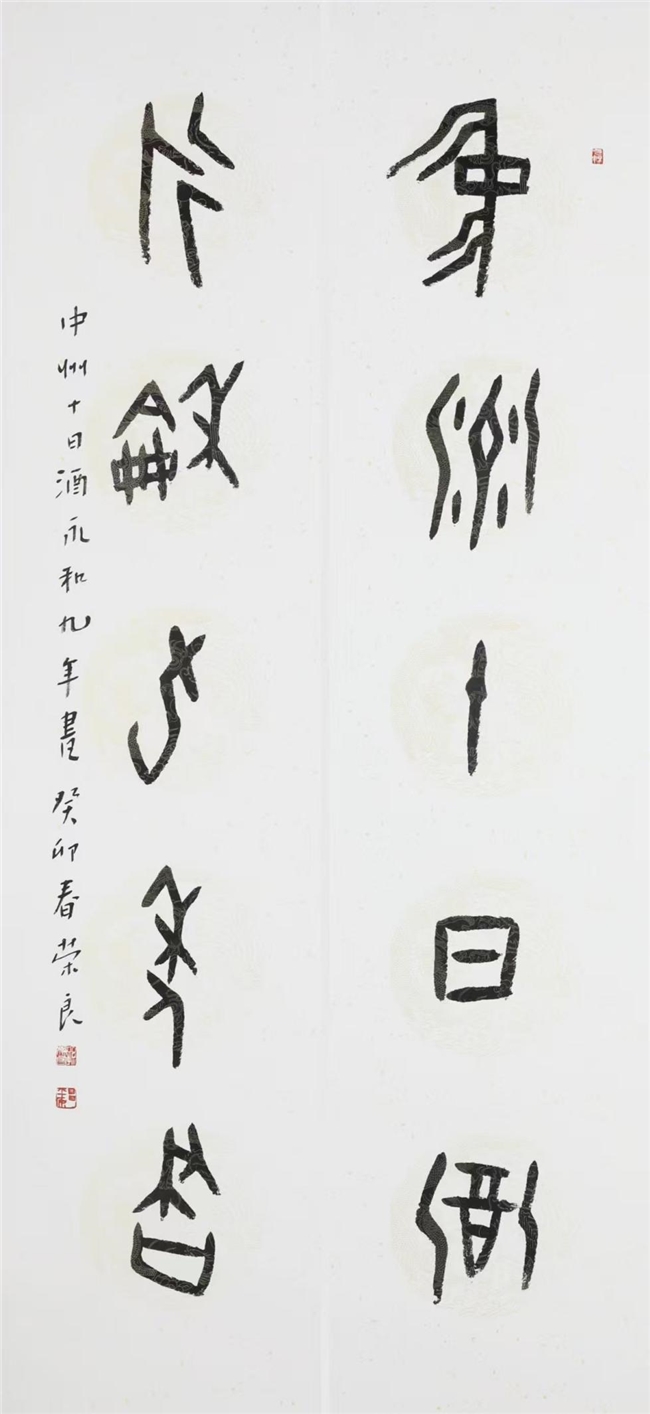 中州十日酒
永和九年書
中州十日酒永和九年書癸卯春荣良